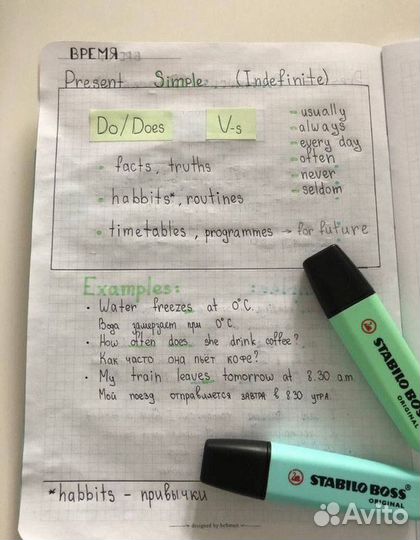 ВРЕМЯ
Present Simple (Indefinite)
Do/Does V-s
- usually
- always
- every day
- often
- never
- seldom
• facts, truths
• habbits*, routines
• timetables, programmes → for future
Examples:
• Water freezes at 0°C.
Вода замерзает при 0°C.
• How often does she drink coffee?
Как часто она пьет кофе?
• My train leaves tomorrow at 8.30 a.m.
Мой поезд отправляется завтра в 8.30 утра.
*habbits - привычки
designed by
STABILO BOSS
ORIGINAL
STABILO BOSS
ORIGINAL
Avito